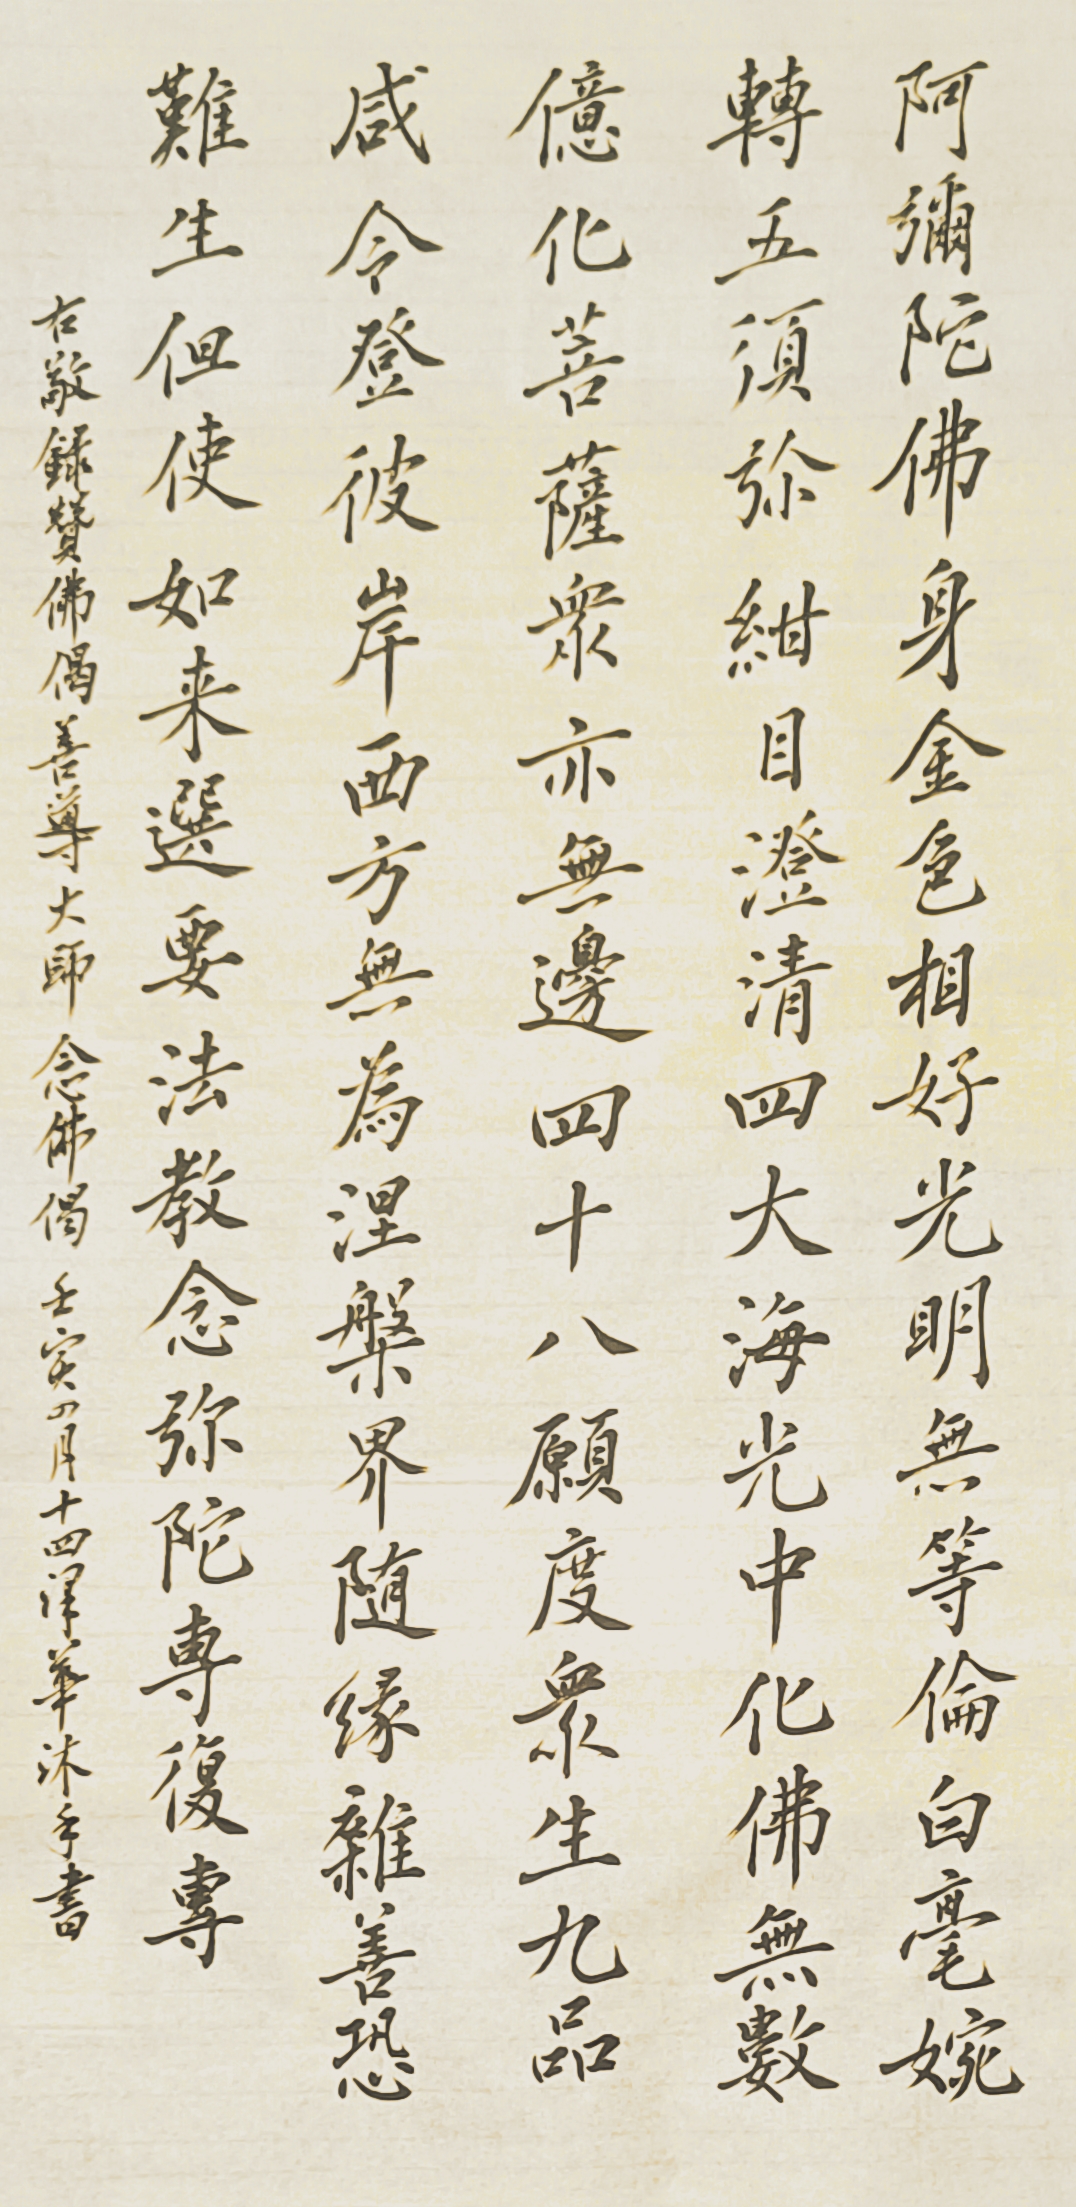 阿彌陀佛身金色相好光明無等倫白毫婉
轉五須弥紺目澄清四大海光中化佛無數
億化菩薩衆亦無邊四十八願度衆生九品
咸令登彼岸西方無為涅槃界随缘雜善恐
難生但使如来選要法教念弥陀専復專
右敬録贊佛偈善導大師念佛偈壬寅四月十四澤華沐手書